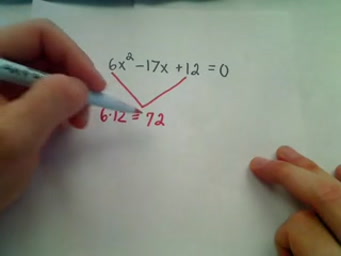 6x² -17x +12 = 0
6·12 = 72